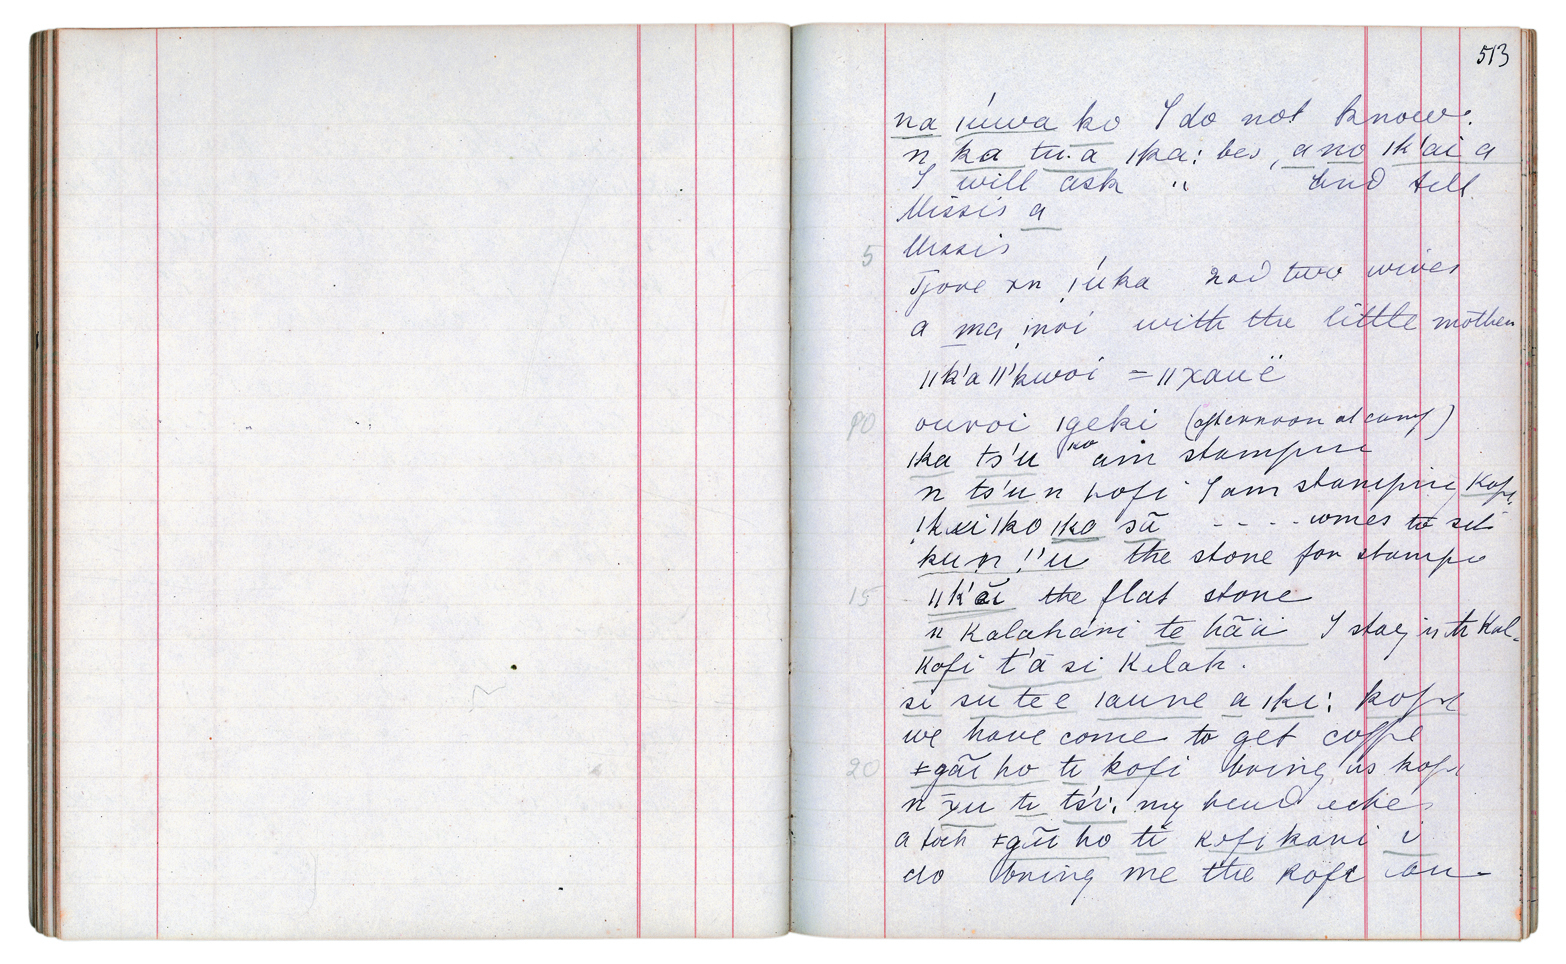 513
na ǀúuwa ko I do not know.
n ka tu. a ǀka: ber, a no ǀk'ai a
I will ask " and tell
Missis a
5 Missis
Tjove xn ǃúka had two wives
a ma ǀnoi with the little mother
ǁk'a ǁ'kwoi = ǁxauë
ouroi ǀgeki (afternoon at camp)
ǀka ts'u ko am stampin
n ts'u n kofi I am stamping Kofi
ǃkxiǀko ǀka sā - - - - comes to sit
ku n ǃ'u the stone for stampe
15 ǁk'ãi the flat stone
n Kalahari te hãii I stay in th Kal-
Kofi t'á si Kelak.
si su te e ǀaune a ǀki: kofi
we have come to get coffe
20 ǂgãi ho ti kofi bring us kofi
n xu ti ts'i: my head eches
a toch ǂgãi ho ti kofi kani i
do bring me the kofi can-